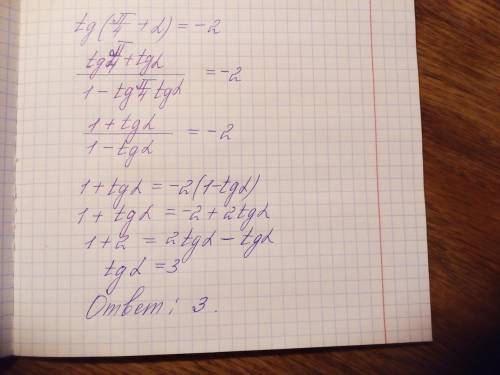 tg(π/4 + α) = -2
(tg π/4 + tgα)/(1 - tg π/4 tgα) = -2
(1 + tgα)/(1 - tgα) = -2
1 + tgα = -2(1-tgα)
1 + tgα = -2 + 2tgα
1 + 2 = 2tgα - tgα
tgα = 3
Ответ: 3.